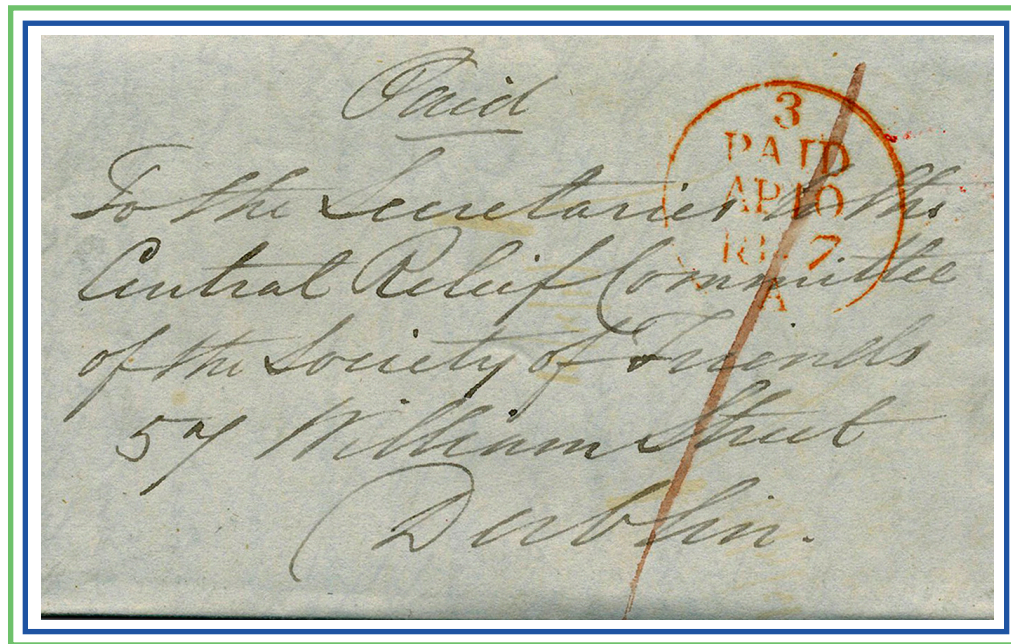 Paid
3
PAID
AP10
1847
A
To the Secretaries to the
Central Relief Committee
of the Society of Friends
57 William Street
Dublin.